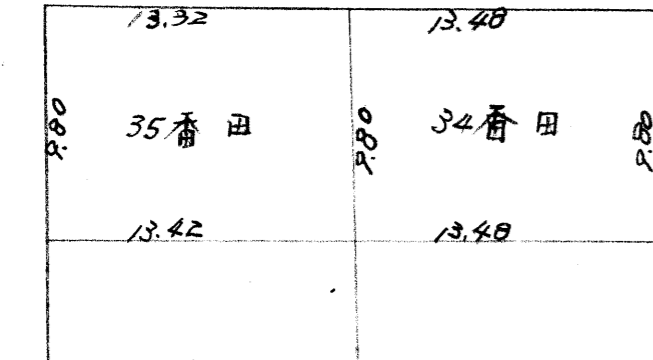 13.32 13.48
9.80 35番田 9.80 34番田 9.80
13.42 13.48